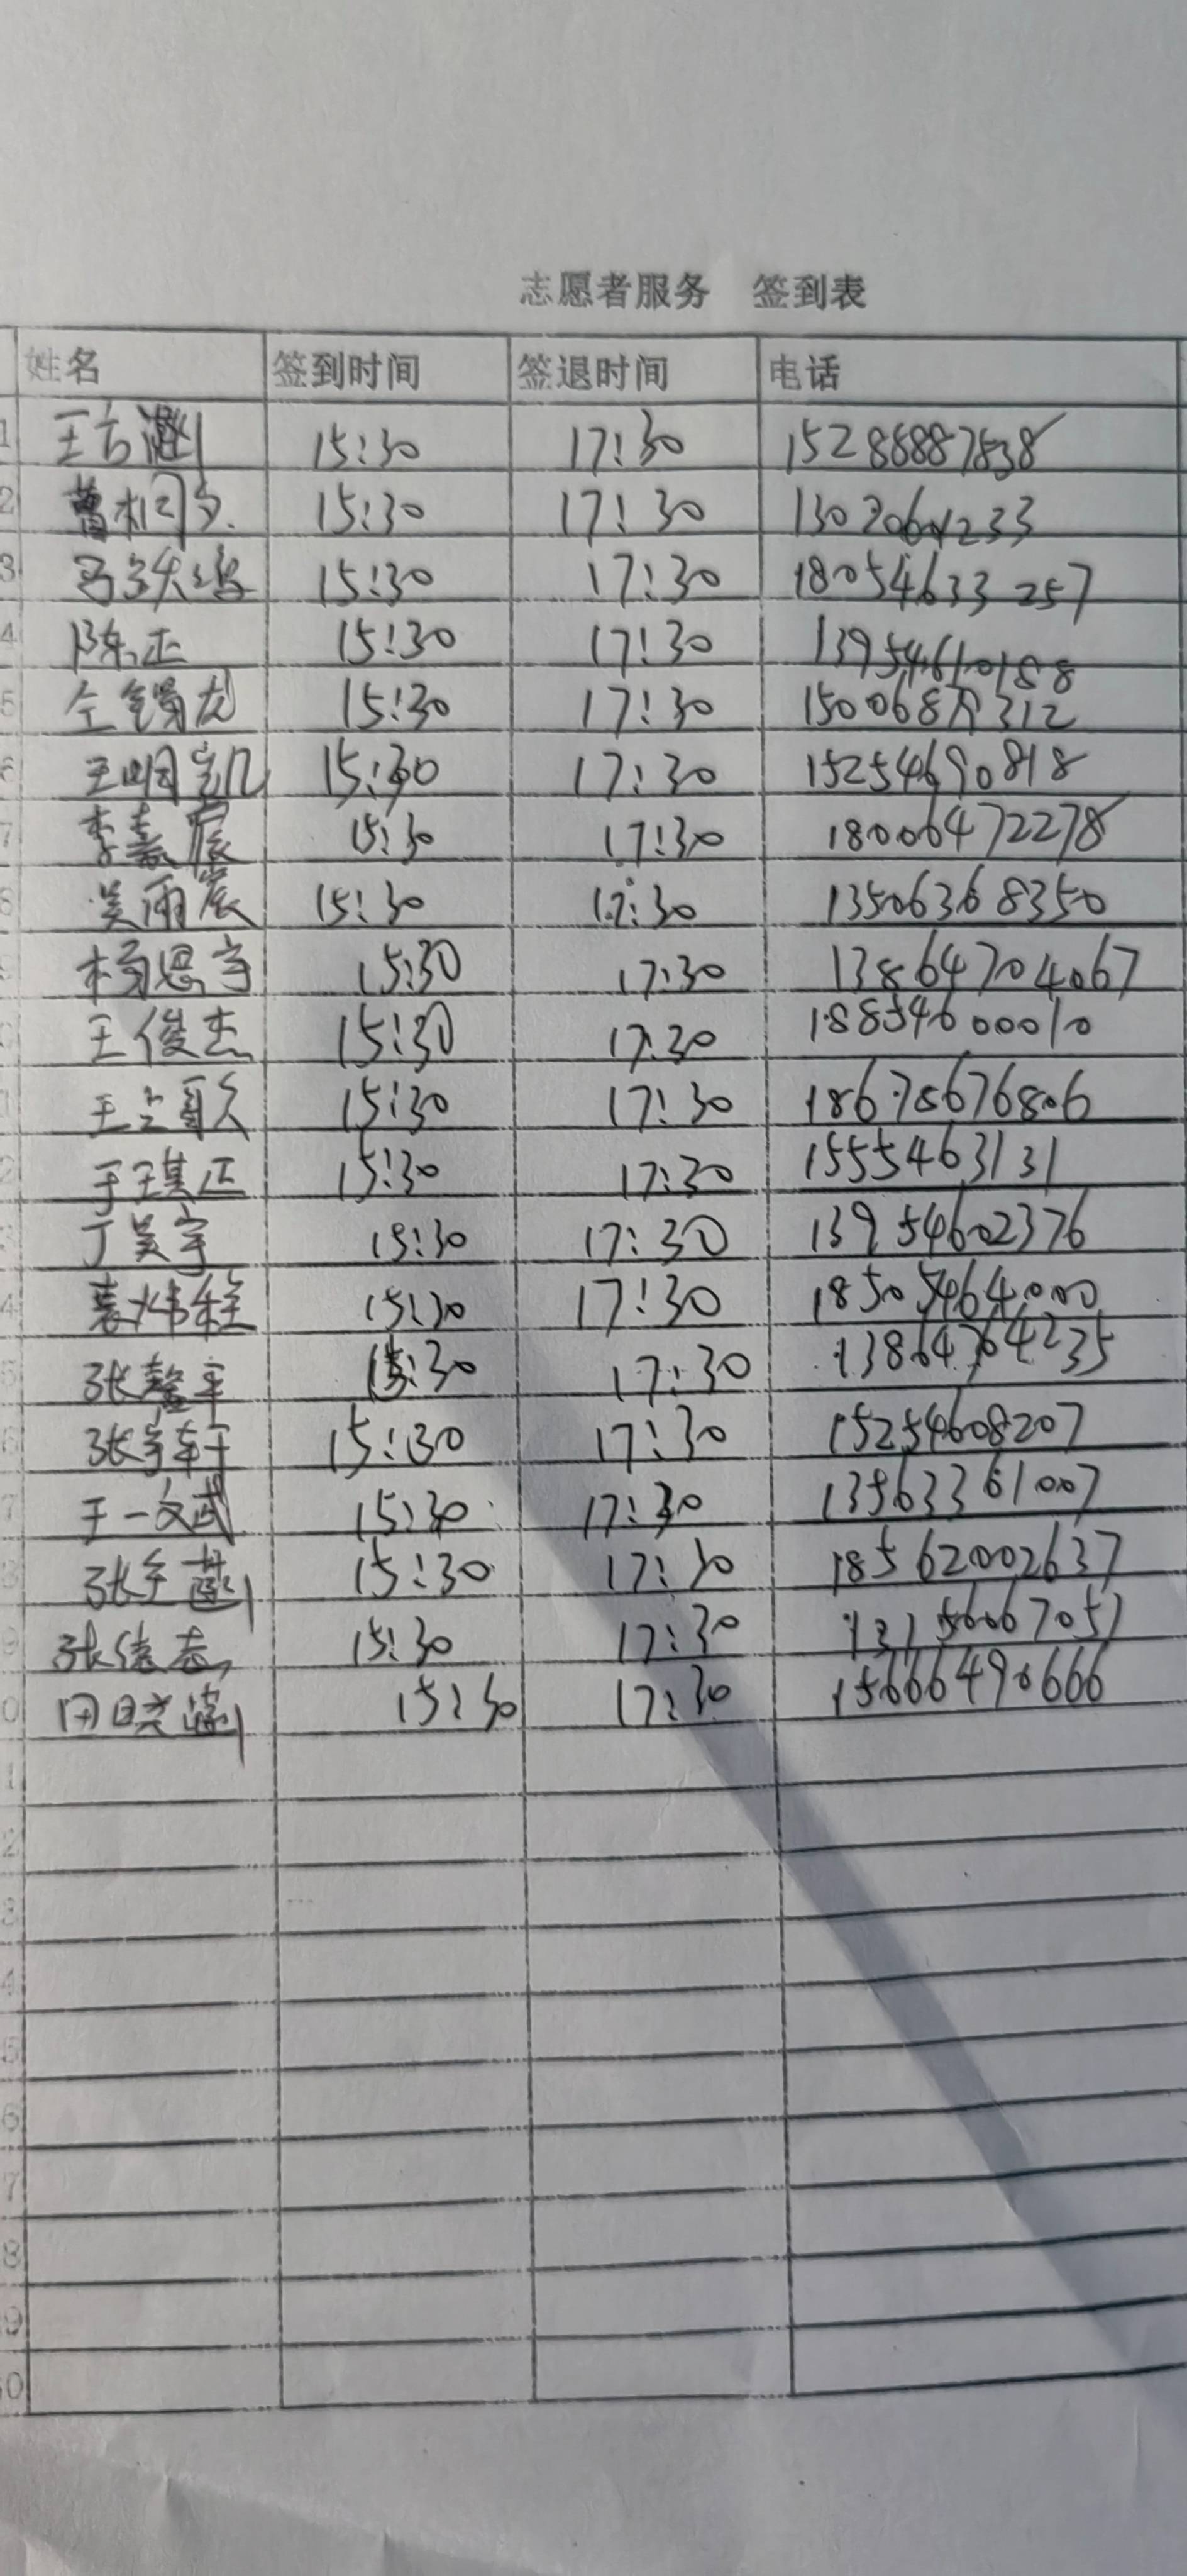 志愿者服务 签到表
姓名 签到时间 签退时间 电话
1 15:30 17:30 15288887838
2 15:30 17:30
3 15:30 17:30 18054633257
4 陈正 15:30 17:30 13954610188
5 15:30 17:30
6 王明凯 15:30 17:30 15254690818
7 李嘉宸 15:30 17:30 18006472278
8 吴雨宸 15:30 17:30 13506368350
杨恩宇 15:30 17:30 13864704067
王俊杰 15:30 17:30 18854600010
15:30 17:30 18678676806
于琪正 15:30 17:30 1555463131
丁昊宇 15:30 17:30 13954602376
4 15:30 17:30 18505464000
张馨平 15:30 17:30 13864764235
张宇轩 15:30 17:30 15254608207
王一斌 15:30 17:30 13563361007
15:30 17:30 18562002637
张德志 15:30 17:30
0 田晓涵 15:30 17:30 15666490666
1
2
3
4
5
6
7
8
9
0